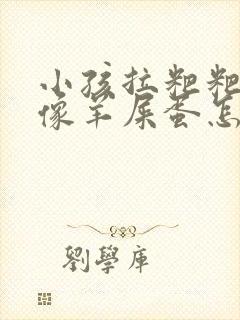 小孩拉粑粑
像羊屎蛋怎
劉學庫